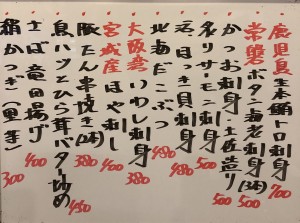 鹿児島 生本鮪トロ刺身 700
常磐 ボタン海老刺身(3本) 500
かつお刺身 土佐造り 500
炙りサーモン刺身 500
活ほっき貝刺身 480
北海だこぶつ 480
大阪産 いわし刺身 380
宮城産 ほや刺し 400
豚たん串焼き(2本) 380
鳥ハツとひら茸バター炒め 450
さば竜田揚げ 400
絹かつぎ(里芋) 300